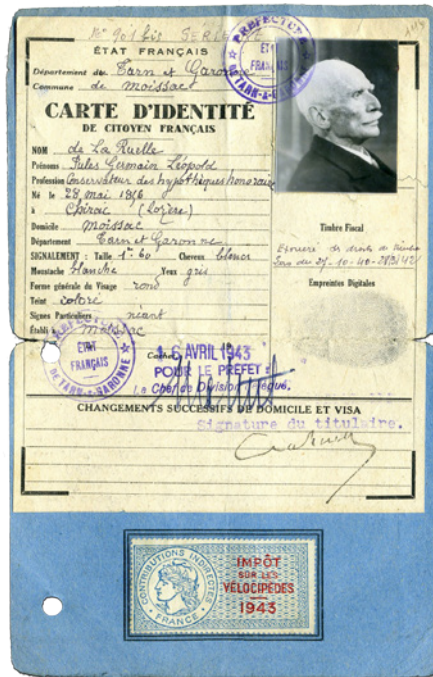 No 901 bis SERIE
PREFECTURE
ETAT
FRANÇAIS
DE TARN-&-GARONNE
ÉTAT FRANÇAIS
Département de Tarn et Garonne
Commune de Moissac
CARTE D'IDENTITÉ
DE CITOYEN FRANÇAIS
NOM de La Ruelle
Prénoms Jules Germain Léopold
Profession Conservateur des hypothèques honoraire
Né le 28 mai
à Chirac (Lozère)
Domicile Moissac
Département Tarn et Garonne
SIGNALEMENT : Taille 1m 60 Cheveux blancs
Moustache blanche Yeux gris
Forme générale du Visage rond
Teint coloré
Signes Particuliers néant
Établi à Moissac
Timbre Fiscal
de droits de timbre
Empreintes Digitales
PREFECTURE
ETAT
FRANÇAIS
DE TARN-&-GARONNE
Cachet
16 AVRIL 1943
POUR LE PREFET :
Le Chef de Division
CHANGEMENTS SUCCESSIFS DE DOMICILE ET VISA
Signature du titulaire.
CONTRIBUTIONS INDIRECTES
FRANCE
IMPÔT
SUR LES
VÉLOCIPÈDES
1943